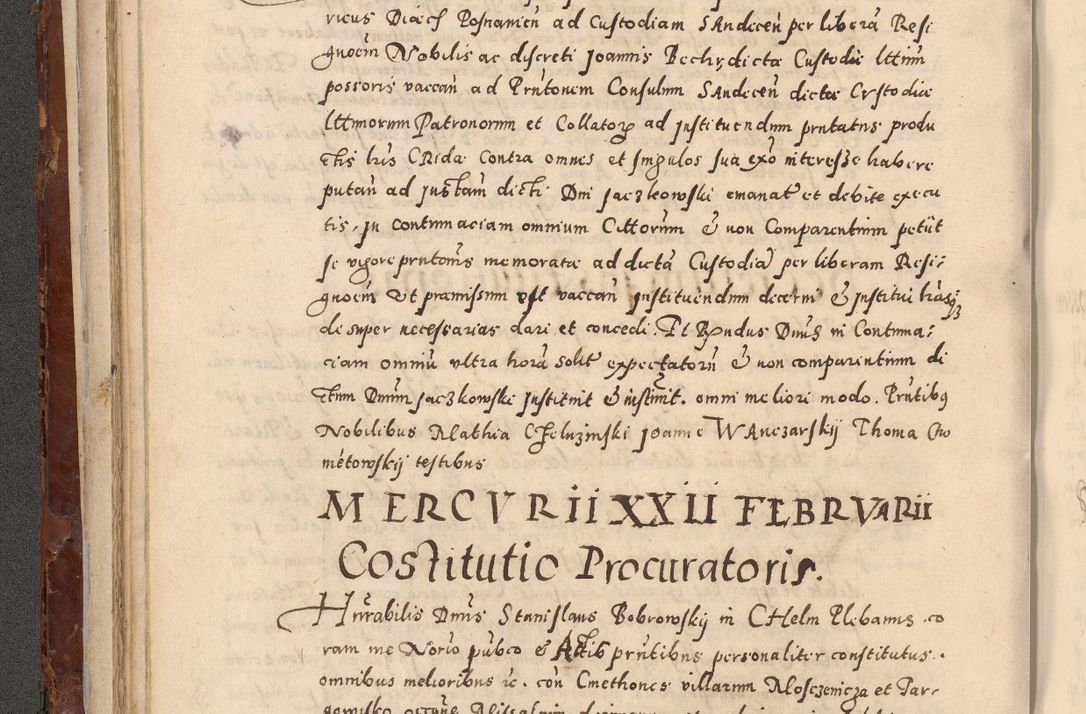 ricus Diaec͞ Posnanien̄ ad Custodiam SAndecen̄ per liberā Resi
gnoem̄ Nobilis ac discreti Joannis Bechr, dictæ Custodiæ ltt̄imi
possoris vaccan̄ ad Prn̄tonem Consulum SAndecen̄ dictæ Cvstodiæ
ltt̄morum Patronorum et Collatoꝝ ad instituendum prn̄tatus produ
ctis lr̄is CRidæ Contra omnes et singulos sua exō interesse habere
putan̄ ad instam̄ dicti Dni Jaczkowski emanat̄ et debite execu
tis, in contumaciam omnium Cittorūm & non Comparentium petiit
se vigore prn̄tonis memoratæ ad dictā Custodiā per liberam Resi:
gnoem̄ Vt præmissum vst vaccan̄ instituendum decerni & institui lr̄asqȝ
desuper necessarias dari et concedi. Et Rn̄dus Dnūs in Contuma:
ciam omniū ultra horā solit̄ expectatorū & non comparentium di
ctum Dnūm Jaczkowski instituit & instinit. omni meliori modo. Prn̄tibȝ
Nobilibus Mathia CHeluzinski Joanne WAnczarskij Thoma Cho
mētowskij testibus
MERCVRII XXII FEBRVARii
Costitutio Procuratoris.
Hnr̄abilis Dnūs Stanislaus Bobrowskij in CHelm Plebanus co
ram me Norīo pūbco & Actis prn̄tibus personaliter constitutus.
omnibus melioribus ꝛc. con̄ Cmethones villarum Mosczenicza et Tar-